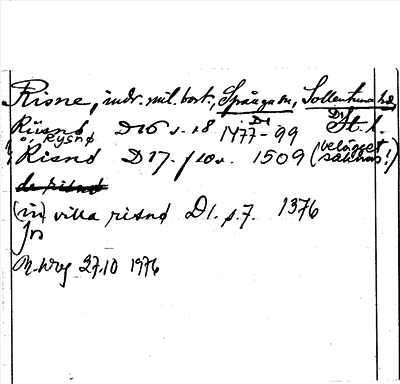 Risne, indr. mil. bost., Spånga sn, Sollentuna hd,
Riisnø D16 s. 18 1477-99 D1 St. l.
o. Rysnø
Risnø D17. f 10v. 1509 (belägget saknas!)
de risnø
(in) villa risnø D1. s. 7. 1376
27.10 1976